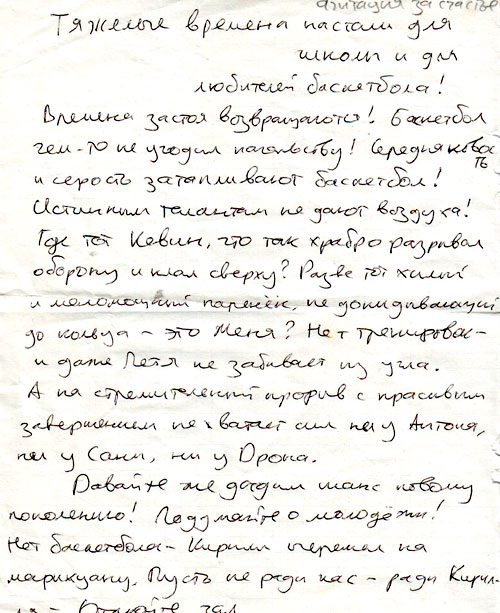 агитация за счастье
Тяжелые времена настали для
школы и для
любителей баскетбола!
Времена застоя возвращаются! Баскетбол
чем-то не угодил начальству! Середняковость
и серость затапливают баскетбол!
Истинным талантам не дают воздуха!
Где тот Кевин, что так храбро разрывал
оборону и клал сверху? Разве тот хилый
и маломощный паренёк, не докидывающий
до кольца - это Женя? Нет тренировок -
и даже Петя не забивает из угла.
А на стремительный прорыв с красивым
завершением не хватает сил ни у Антона,
ни у Сани, ни у Дрона.
Давайте же дадим шанс новому
поколению! Подумайте о молодёжи!
Нет баскетбола - Кирилл перешел на
марихуану. Пусть не ради нас - ради Кирил-
ла - зал